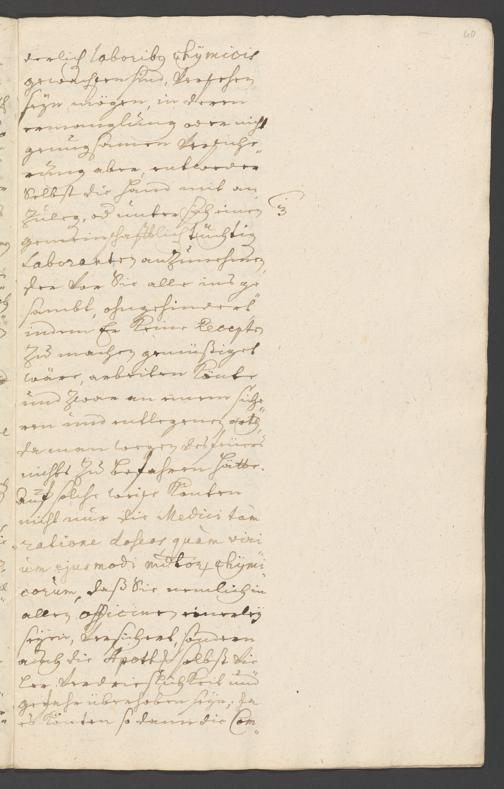 40
derlich laboribus chymicis
gewachsen sind, versehen
seyn mögen, in deren
ermanglung oder nicht
genugsamen versiche-
rung aber, entweder
selbst die Hand mit an
Zuleg, od unter sich einen
3
gemeinschafftlich tüchtig
Laboranten anzunehmen,
der vor Sie alle ins ge-
sambt, ohngehindert
indem Er keine Recepte
zu machen gemüßiget
wäre, arbeiten könte
und zwar an einem siche-
ren und entlegenen orth,
da man wegen des feuers
nicht zu befahren hätte.
Auf solche weise könten
nicht nur die Medici tam
ratione doseos quam viri
um ejusmodi mdtor chymi
corum, daß Sie nemlich in
allen officinen einerley
seyen, versichert, sondern
auch die Apoth selbst vie
ler verdrieslichkeit und
gefahr überhoben seyn; da
es könten so dann die Com-